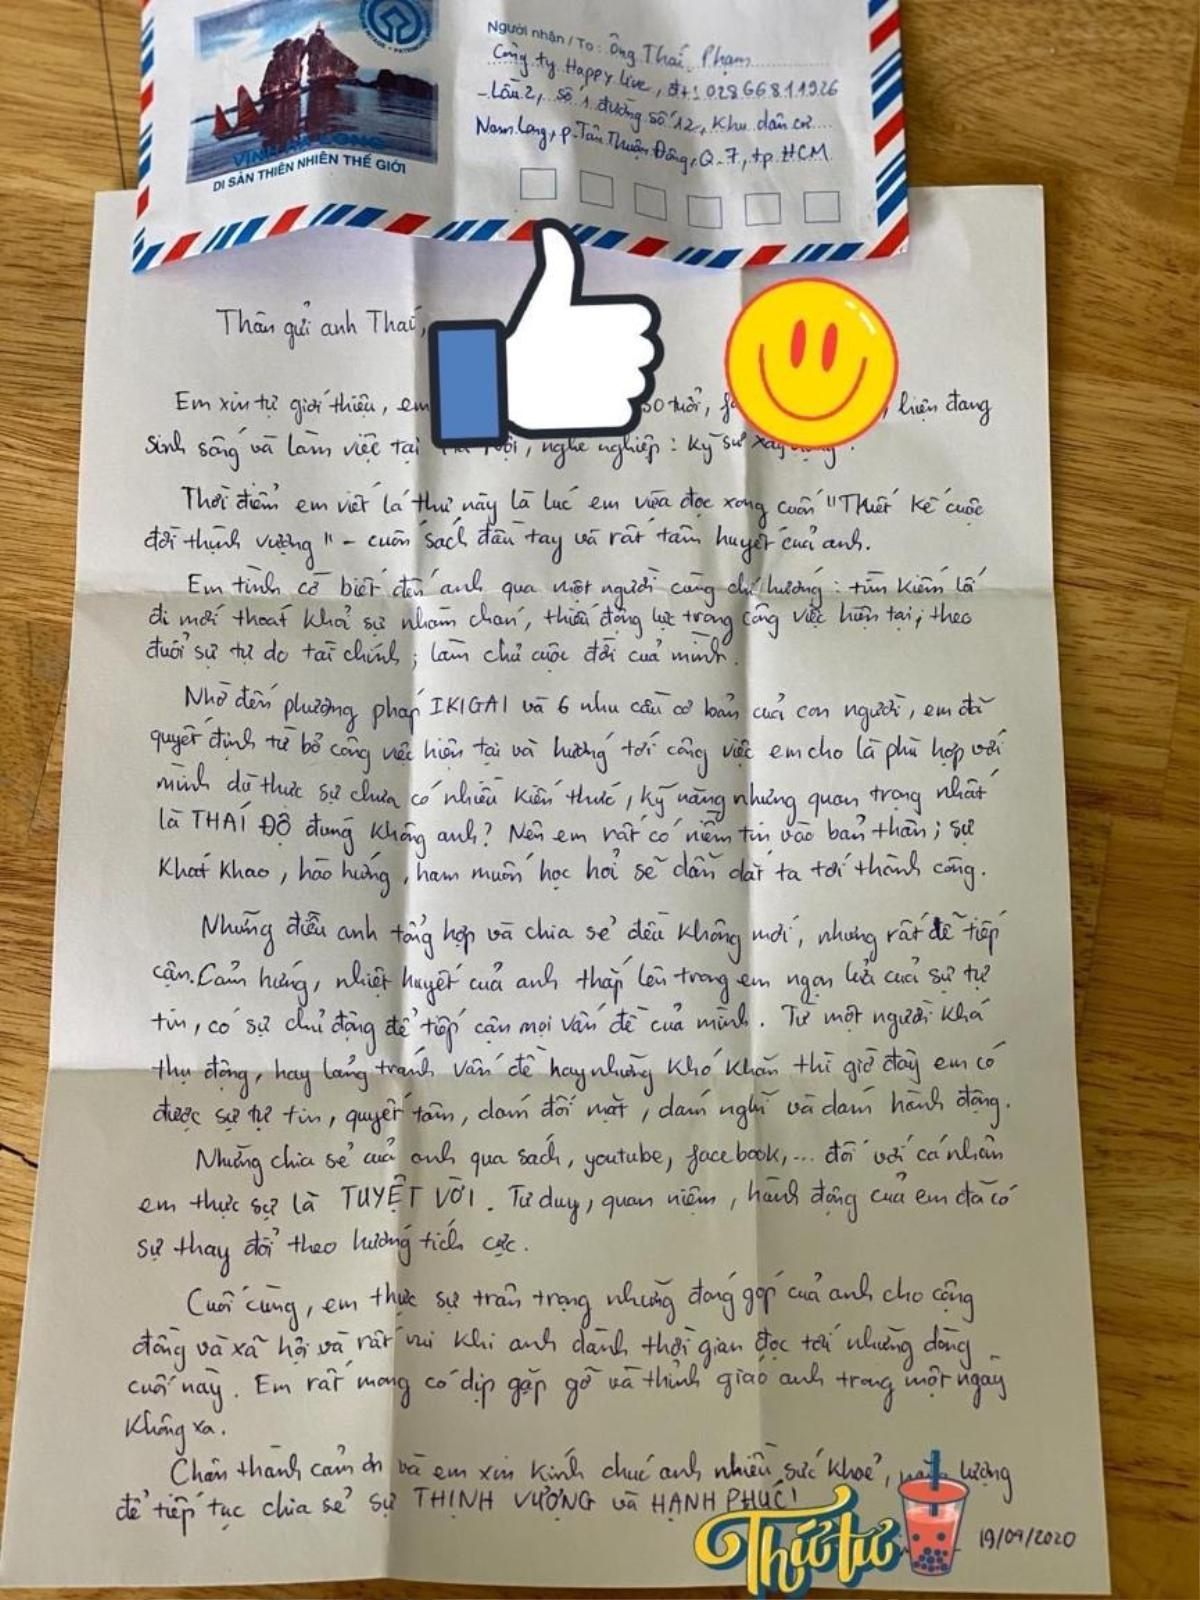 VỊNH HẠ LONG
DI SẢN THIÊN NHIÊN THẾ GIỚI
Người nhận / To: Ông Thái Phạm
Công ty Happy Live, đt: 02866811926
Lầu 2, số 1 đường số 12, Khu dân cư
Nam Long, p. Tân Thuận Đông, Q.7, tp. HCM
Thân gửi anh Thái,
Em xin tự giới thiệu, em 30 tuổi, hiện đang
sinh sống và làm việc tại nghề nghiệp: Kỹ sư xây dựng.
Thời điểm em viết lá thư này là lúc em vừa đọc xong cuốn "Thiết kế cuộc
đời thịnh vượng" - cuốn sách đầu tay và rất tâm huyết của anh.
Em tình cờ biết đến anh qua một người cùng chí hướng: tìm kiếm lối
đi mới thoát khỏi sự nhàm chán, thiếu động lực trong công việc hiện tại; theo
đuổi sự tự do tài chính; làm chủ cuộc đời của mình.
Nhờ đến phương pháp IKIGAI và 6 nhu cầu cơ bản của con người, em đã
quyết định từ bỏ công việc hiện tại và hướng tới công việc em cho là phù hợp với
mình dù thực sự chưa có nhiều kiến thức, kỹ năng nhưng quan trọng nhất
là THÁI ĐỘ đúng không anh? Nên em rất có niềm tin vào bản thân; sự
khát khao, hào hứng, ham muốn học hỏi sẽ dẫn dắt ta tới thành công.
Những điều anh tổng hợp và chia sẻ đều không mới, nhưng rất dễ tiếp
cận. Cảm hứng, nhiệt huyết của anh thắp lên trong em ngọn lửa của sự tự
tin, có sự chủ động để tiếp cận mọi vấn đề của mình. Từ một người khá
thụ động, hay lảng tránh vấn đề hay những khó khăn thì giờ đây em có
được sự tự tin, quyết tâm, dám đối mặt, dám nghĩ và dám hành động.
Những chia sẻ của anh qua sách, youtube, facebook,... đối với cá nhân
em thực sự là TUYỆT VỜI. Tư duy, quan niệm, hành động của em đã có
sự thay đổi theo hướng tích cực.
Cuối cùng, em thực sự trân trọng những đóng góp của anh cho cộng
đồng và xã hội và rất vui khi anh dành thời gian đọc tới những dòng
cuối này. Em rất mong có dịp gặp gỡ và thỉnh giáo anh trong một ngày
không xa.
Chân thành cảm ơn và em xin kính chúc anh nhiều sức khoẻ, năng lượng
để tiếp tục chia sẻ sự THỊNH VƯỢNG và HẠNH PHÚC!
Thứ tư
19/09/2020